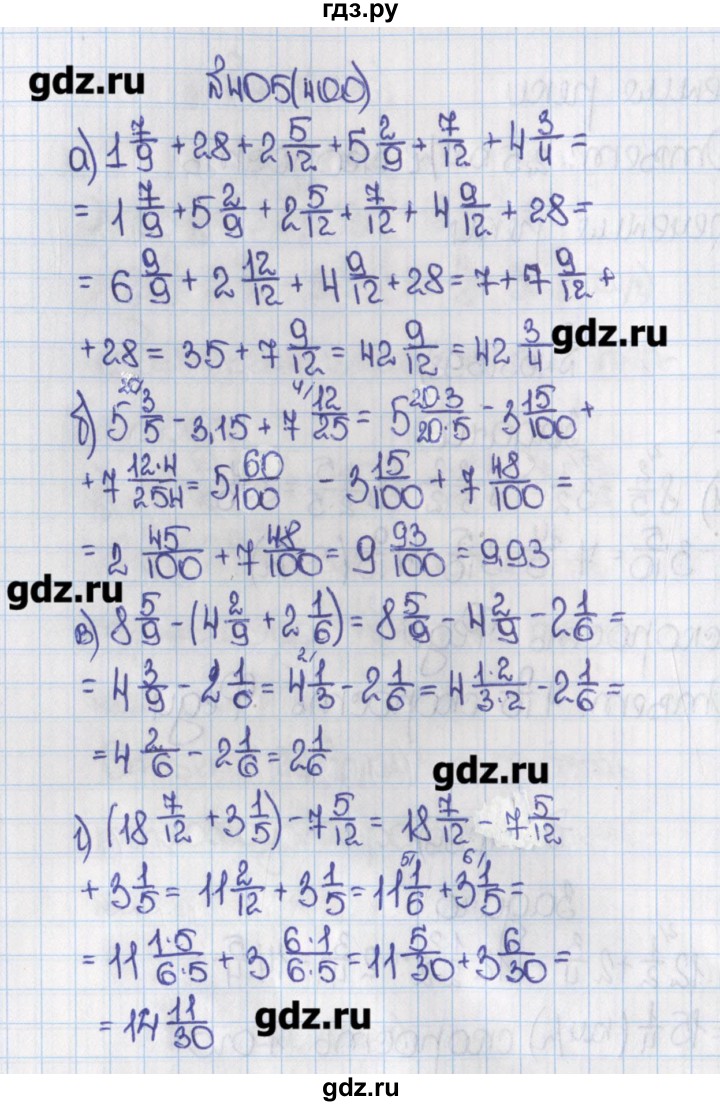 гдз.ру
gdz.ru
№405(400)
а) 1 7/9 + 28 + 2 5/12 + 5 2/9 + 7/12 + 4 3/4 =
= 1 7/9 + 5 2/9 + 2 5/12 + 7/12 + 4 9/12 + 28 =
= 6 9/9 + 2 12/12 + 4 9/12 + 28 = 7 + 7 9/12 +
+ 28 = 35 + 7 9/12 = 42 9/12 = 42 3/4
gdz.ru
б) 5 20/ 3/5 - 3,15 + 7 4/ 12/25 = 5 20·3/20·5 - 3 15/100 +
+ 7 12·4/25 4 = 5 60/100 - 3 15/100 + 7 48/100 =
= 2 45/100 + 7 48/100 = 9 93/100 = 9,93
gdz.ru
в) 8 5/9 - (4 2/9 + 2 1/6) = 8 5/9 - 4 2/9 - 2 1/6 =
= 4 3/9 - 2 1/6 = 4 2/ 1/3 - 2 1/6 = 4 1·2/3·2 - 2 1/6 =
= 4 2/6 - 2 1/6 = 2 1/6
gdz.ru
г) (18 7/12 + 3 1/5) - 7 5/12 = 18 7/12 - 7 5/12
+ 3 1/5 = 11 2/12 + 3 1/5 = 11 5/ 1/6 + 3 6/ 1/5 =
= 11 1·5/6·5 + 3 6·1/6·5 = 11 5/30 + 3 6/30 =
= 14 11/30
gdz.ru
gdz.ru